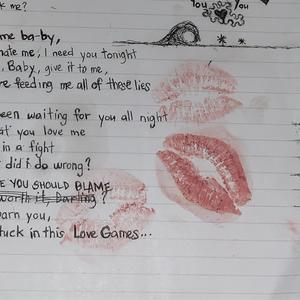 me?
You You
me ba-by,
hate me, I need you tonight
, Baby, give it to me,
re feeding me all of these lies
een waiting for you all night
at you love me
in a fight
did I do wrong?
E YOU SHOULD BLAME
worth it, Darling?
arn you,
tuck in this Love Games...